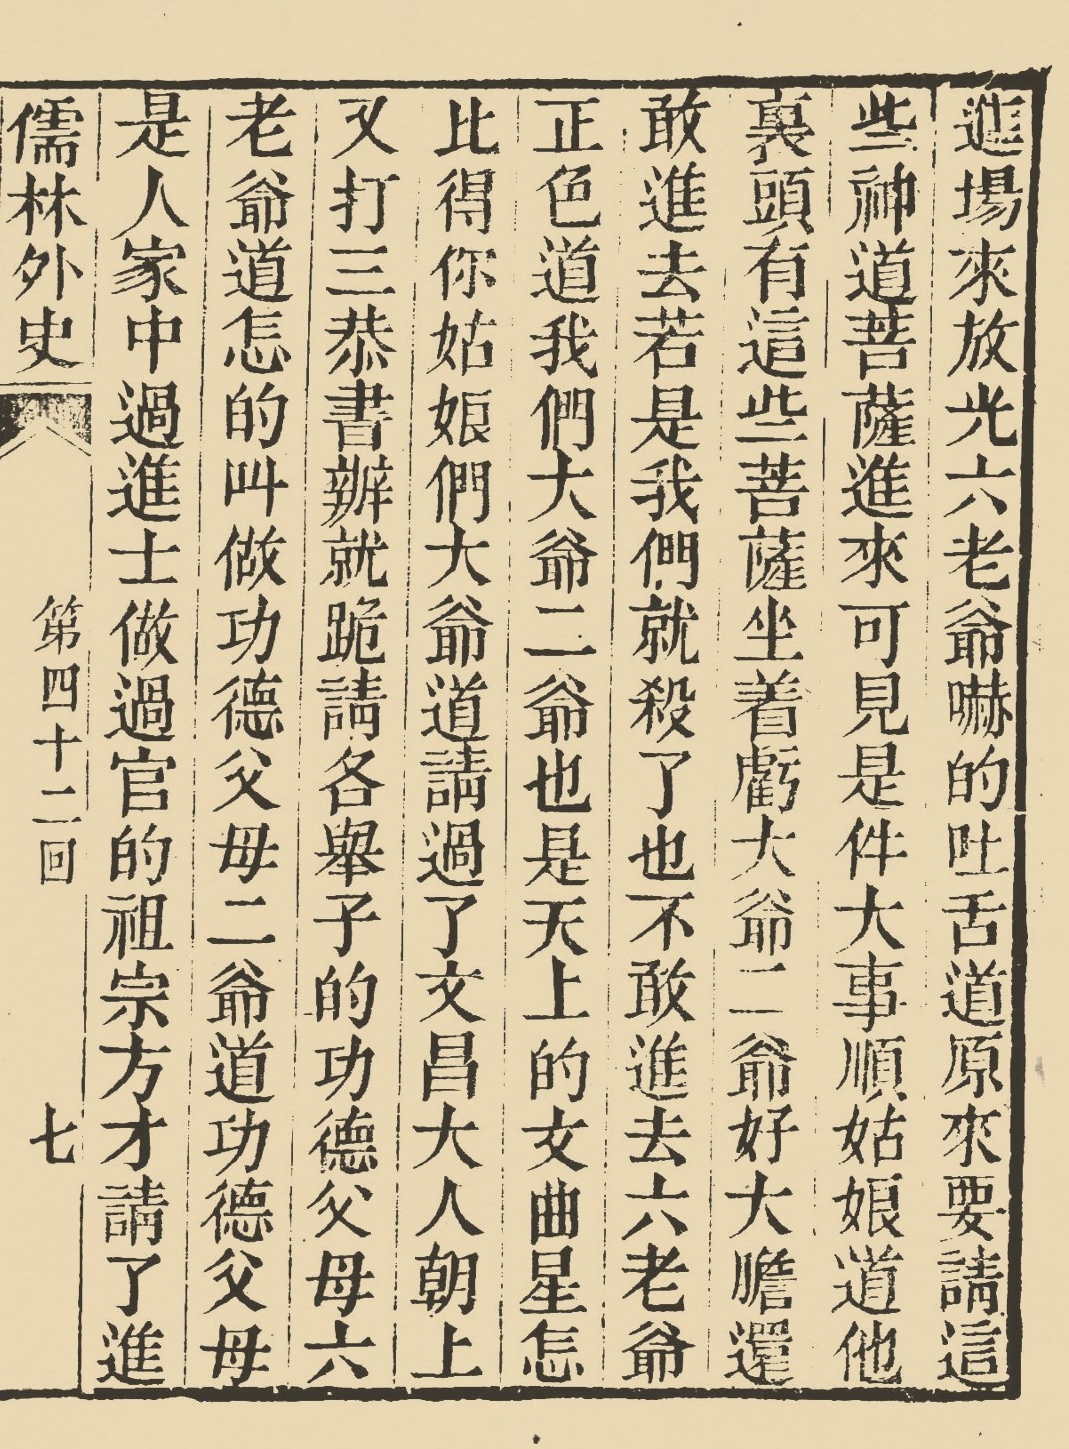 進場來放光六老爺嚇的吐舌道原來要請這
些神道菩薩進來可見是件大事順姑娘道他
裏頭有這些菩薩坐着虧大爺二爺好大膽還
敢進去若是我們就殺了也不敢進去六老爺
正色道我們大爺二爺也是天上的文曲星怎
比得你姑娘們大爺道請過了文昌大人朝上
又打三恭書辦就跪請各舉子的功德父母六
老爺道怎的叫做功德父母二爺道功德父母
是人家中過進士做過官的祖宗方才請了進
儒林外史
第四十二回
七